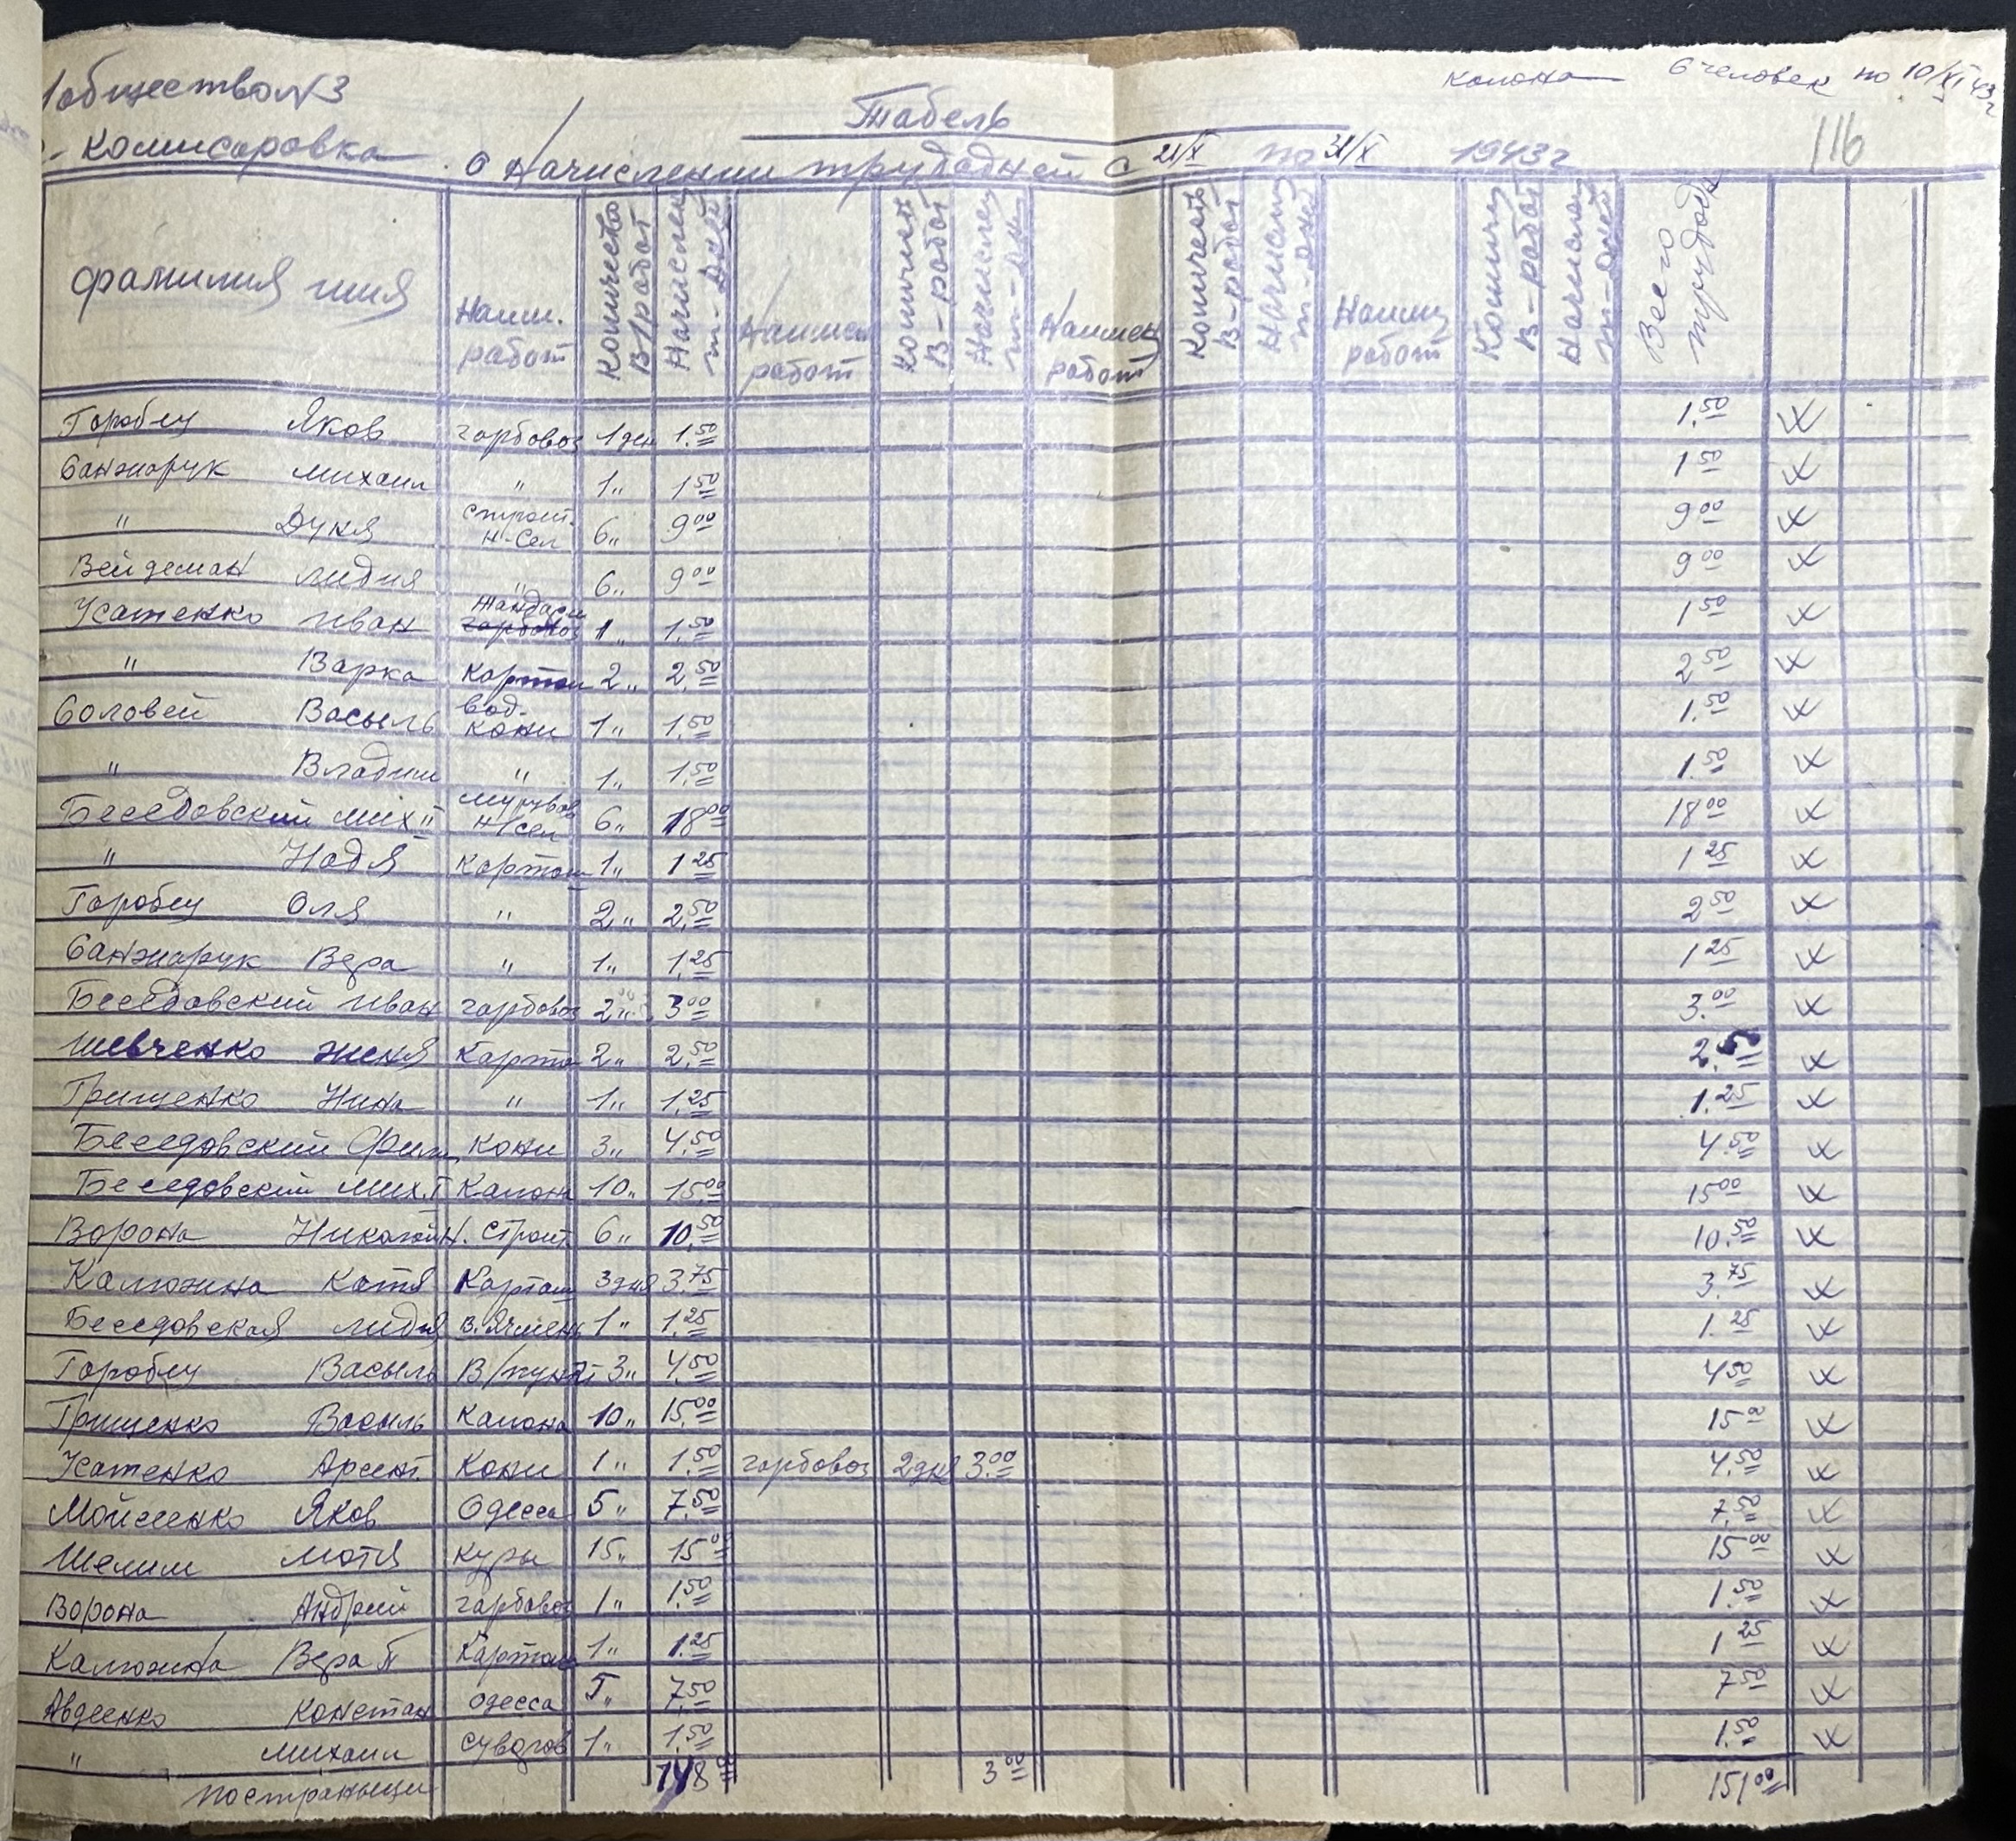 общество №3
Колона 6 человек по 10/XI 43 г
Табель
116
Комисаровка о начислении трудодней с 21/X по 31/X 1943 г
фамилия имя Наим. работ Количество В/работ Начислен т-дней Наимен работ Количеств В-работ Начислен т-дн Наимен работ Количеств В-работ Начислен т-дней Наимен работ Количес В-работ Начислен т-дней Всего трудодн
Горобец Яков гарбовоз 1 ден 1.50 1.50
Санжарук Михаил " 1 " 1 50 1 50
" Дуня строит. н-Сел 6 " 9 00 9 00
Вейдеман Лидия " 6 " 9 00 9 00
Усатенко Иван Жандарм гарбовоз 1 " 1.50 1 50
" Варка Картош 2 " 2.50 2 50
Соловей Васыль вод. Кони 1 " 1.50 1.50
" Владим " 1 " 1.50 1.50
Беседовский Мих II н/сел 6 " 18 00 18 00
" Надя Картош 1 " 1 25 1 25
Горобец Оля " 2 " 2.50 2 50
Санжарук Вера " 1 " 1.25 1 25
Беседовский Иван гарбовоз 2 " 3 00 3.00
Шевченко Женя Карто 2 " 2.50 2.50
Грищенко Нина " 1 " 1.25 1.25
Беседовский Фили Кони 3 " 4.50 4.50
Беседовский Мих. I Калона 10 " 15.00 15 00
Ворона Николай Н. Строит. 6 " 10.50 10.50
Калюжна Катя Картош 3 дня 3.75 3.75
Беседовская Лидия В. Ячмень 1 " 1.25 1.25
Горобец Васыль В/пункт 3 " 4.50 4 50
Грищенко Васыль Калона 10 " 15.00 15 00
Усатенко Арсент. Кони 1 " 1.50 гарбовоз 2 дня 3.00 4.50
Мойсеенко Яков Одесса 5 " 7.50 7.50
Шелим Мотя Куры 15 " 15 00 15 00
Ворона Андрей гарбовоз 1 " 1.50 1.50
Калюжна Вера П Картош 1 " 1.25 1 25
Авдеенко Констан Одесса 5 " 7.50 7 50
" Михаил Суворов 1 " 1.50 1.50
по страныци 148 00 3 00 151 00